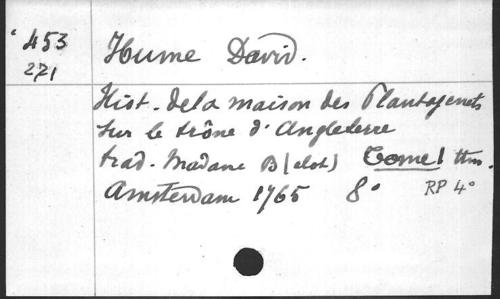 453
271
Hume David.
Hist. de la maison des Plantagenets
sur le trône d'Angleterre
trad. Madame B(elot) Tome 1
Amsterdam 1765 8° RP 4°